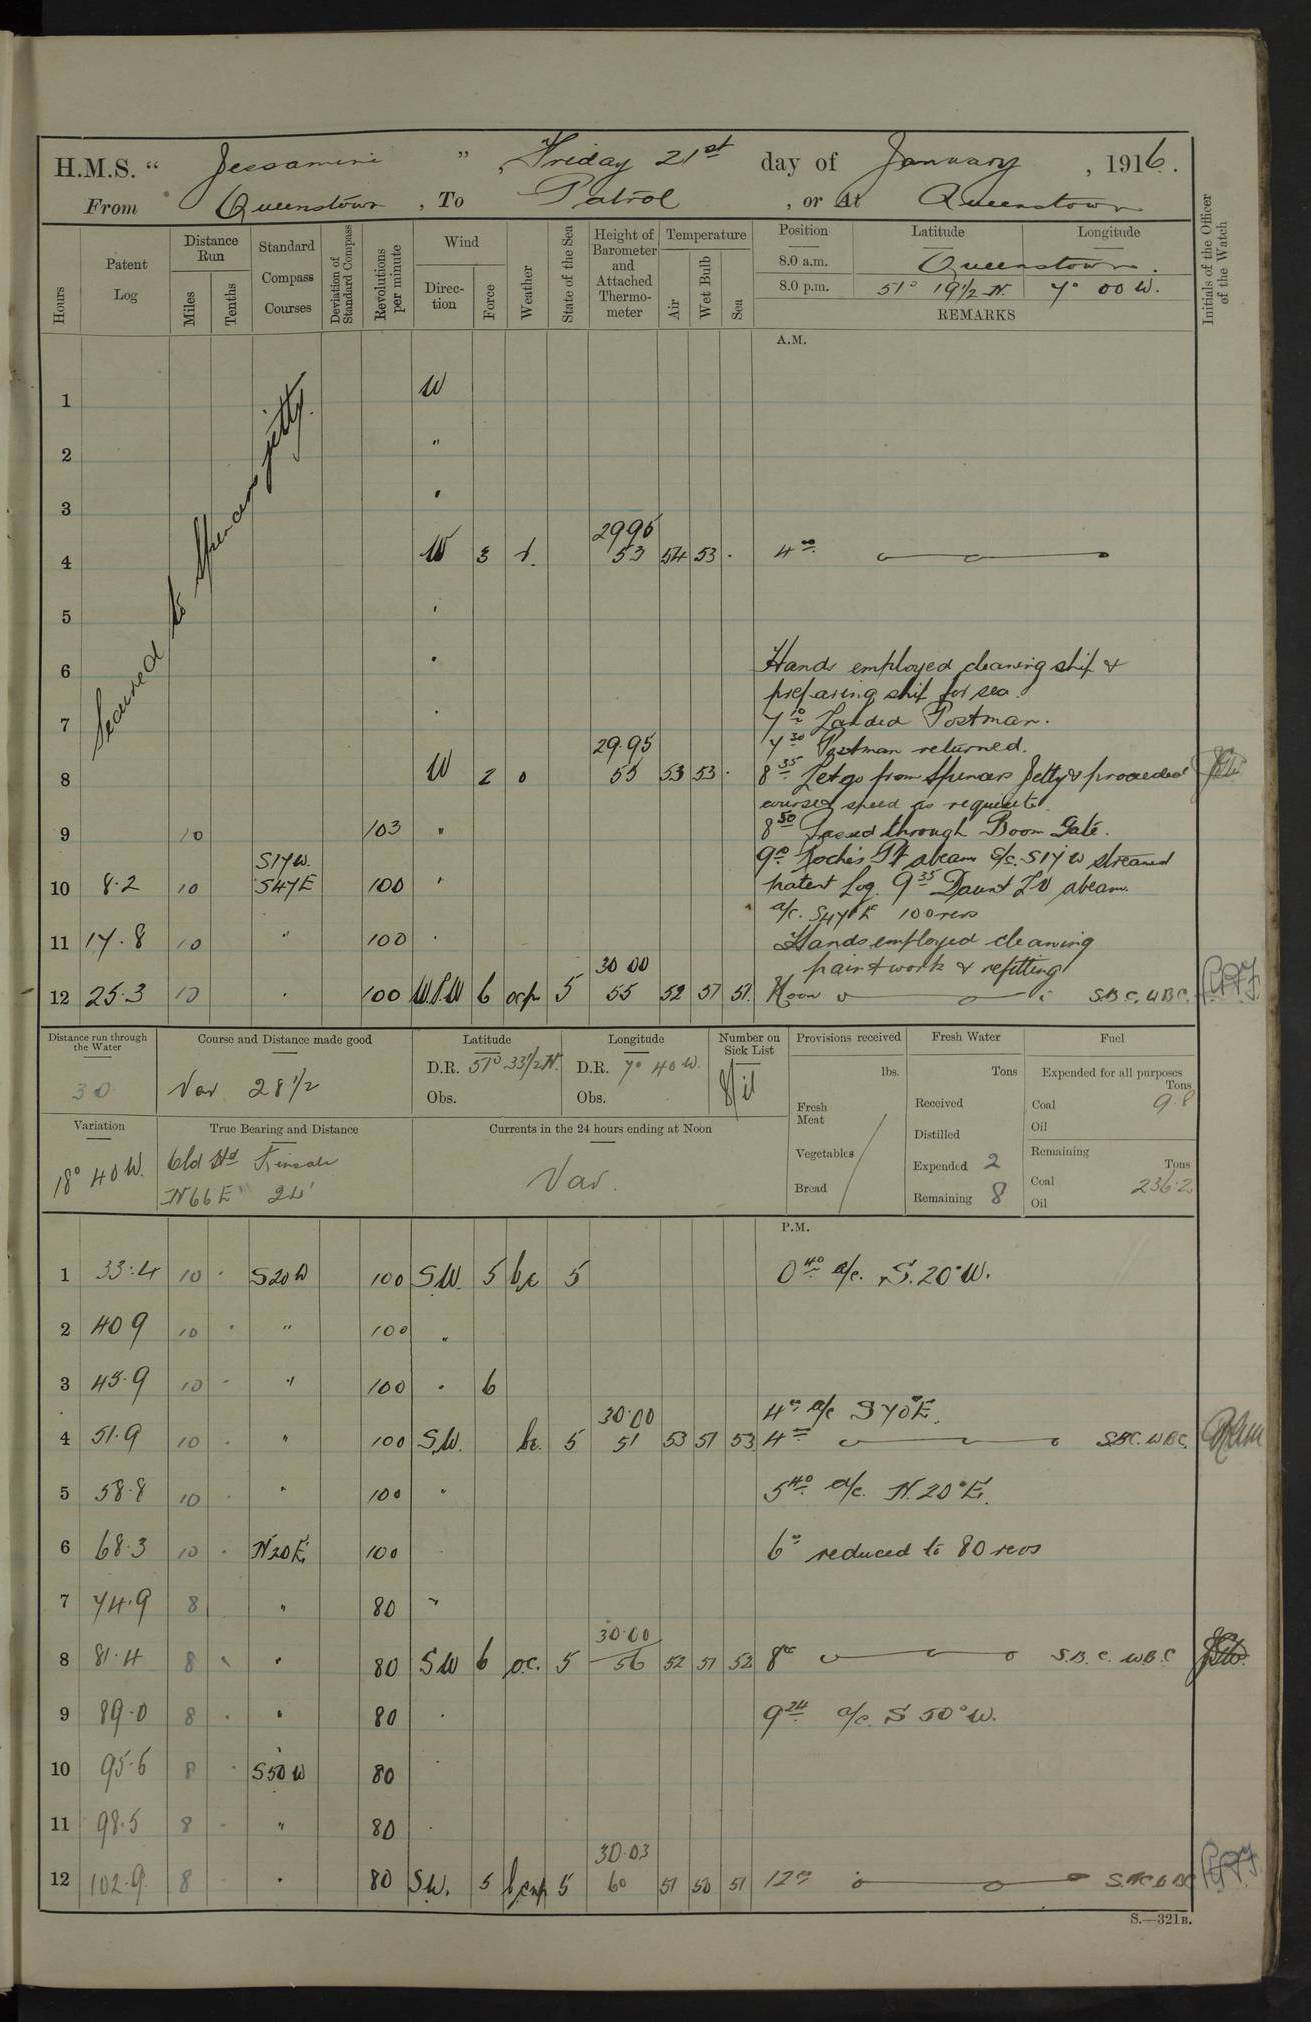 H.M.S. " Jessamine " , Friday 21st day of January , 1916.
From Queenstown , To Patrol , or At Queenstown
Hours
Patent Log
Distance Run
Miles
Tenths
Standard Compass Courses
Deviation of Standard Compass
Revolutions per minute
Wind
Direction
Force
Weather
State of the Sea
Height of Barometer and Attached Thermometer
Temperature
Air
Wet Bulb
Sea
Position
Latitude
Longitude
8.0 a.m. Queenstown.
8.0 p.m. 51° 19½ N. 7° 00 W.
REMARKS
Initials of the Officer of the Watch
A.M.
Secured to Spencers jetty.
1 W
2 "
3 "
29.95
4 W 3 53 54 53 4 00
5
6 Hands employed cleaning ship &
preparing ship for sea.
7 7 10 Landed Postman.
7 30 Postman returned.
29.95
8 W 2 o 55 53 53 8 35 Let go from Spencers Jetty & proceeded
courses & speed as requisite.
9 10 103 " 8 50 Passed through Boom Gate.
S17W. 9 Roches Pt abeam S/c. S17W streamed
10 8.2 10 S47E 100 " patent Log. 9 35 Daunt LV abeam.
a/c. S47E 100 revs
11 17.8 10 " 100 Hands employed cleaning
30 00 paintwork & refitting
12 25.3 10 100 W.S.W 6 ocp 5 55 52 51 51. Noon S.B.C. W.B.C.
Distance run through the Water
30
Course and Distance made good
Var 28½
Latitude
D.R. 51° 33½ N.
Obs.
Longitude
D.R. 7° 40 W.
Obs.
Number on Sick List
Nil
Provisions received
lbs.
Fresh Meat
Vegetables
Bread
Fresh Water
Tons
Received
Distilled
Expended 2
Remaining 8
Fuel
Expended for all purposes
Tons
Coal 9.8
Oil
Remaining
Tons
Coal 236.2
Oil
Variation
18° 40 W.
True Bearing and Distance
Old Hd Kinsale
N66E 24'
Currents in the 24 hours ending at Noon
Var.
P.M.
1 33.4 10 S20W 100 S.W. 5 bc 5 0 40 a/c. S.20°W.
2 40 9 10 " 100 "
3 45.9 10 " 100 6
30.00 4 00 a/c S70°E.
4 51.9 10 " 100 S.W. bc. 5 51 53 51 53 4 00 S.B.C. W.B.C.
5 58.8 10 " 100 " 5 40 a/c. N.20°E.
6 68.3 10 N20E 100 6 reduced to 80 revs
7 74.9 8 " 80 "
30.00
8 81.4 8 " 80 SW 6 o.c. 5 56 52 51 52 8 S.B.C. W.B.C
9 89.0 8 " 80 9 24 a/c. S 50° W.
10 95.6 8 S50W 80
11 98.5 8 " 80
30.03
12 102.9 8 80 S.W. 5 5 60 51 50 51 12
S.—321B.